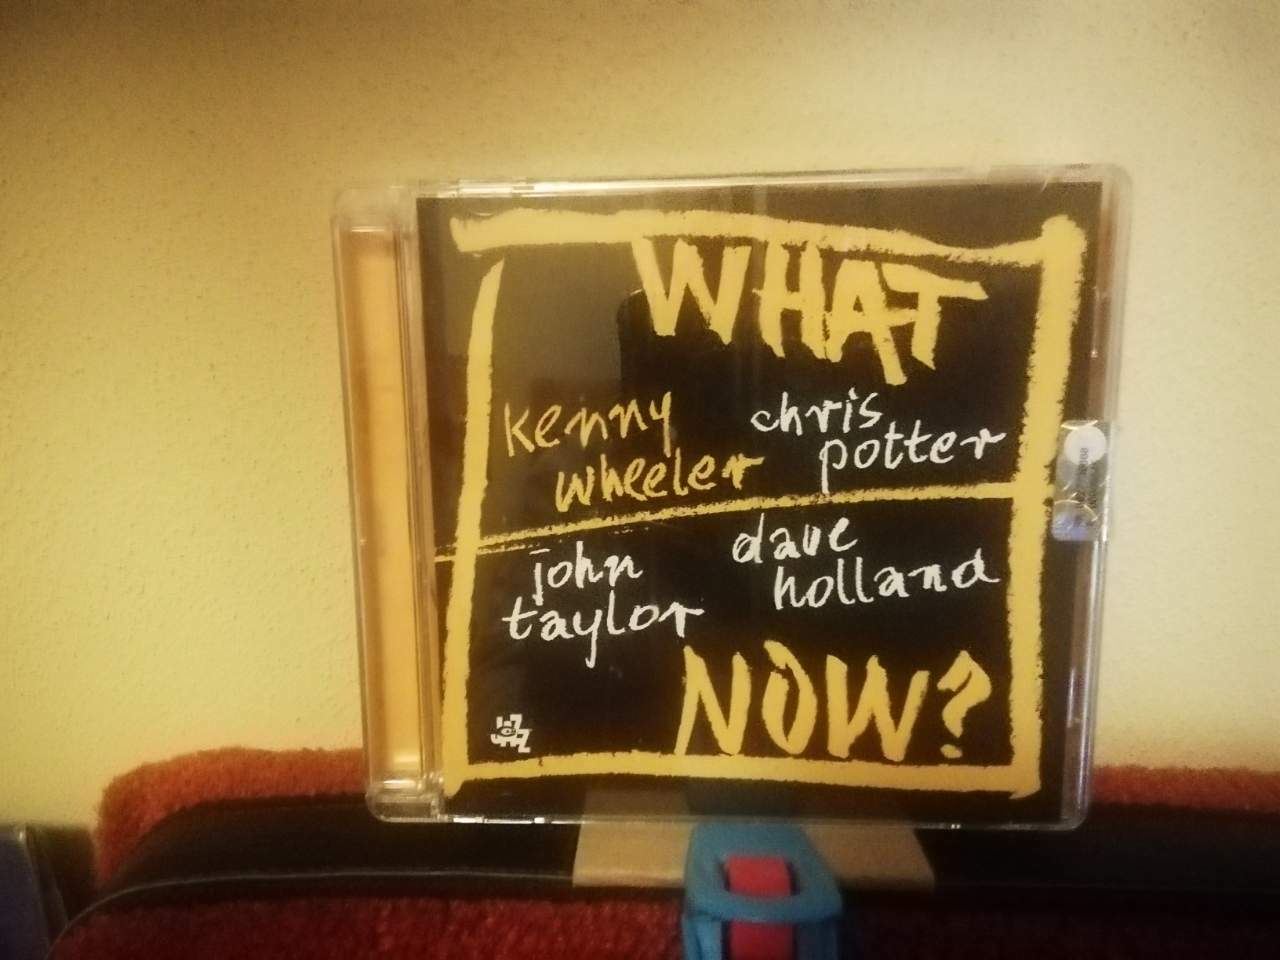 WHAT
kenny
wheeler
chris
potter
john
taylor
dave
holland
NOW?